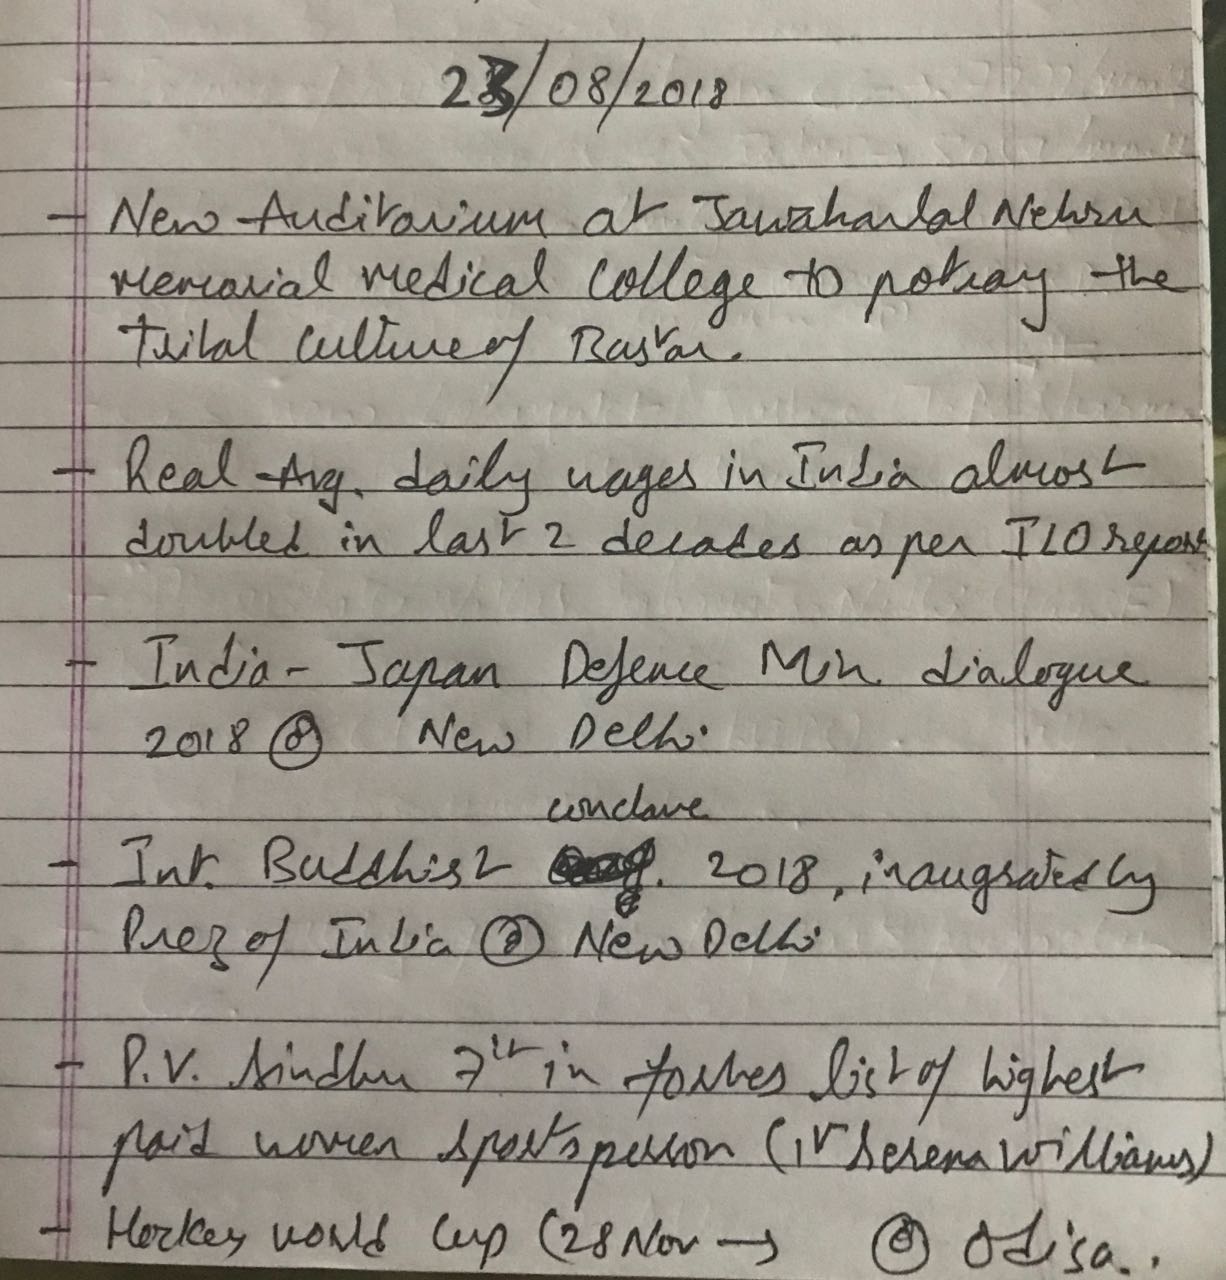 23/08/2018
- New Auditorium at Jawaharlal Nehru
memorial medical college to potray the
tribal culture of Bastar.
- Real Avg. daily wages in India almost
doubled in last 2 decades as per ILO report
- India - Japan Defence Min dialogue
2018 @ New Delhi
conclave
- Int. Buddhist 2018, inaugrated by
Prez of India @ New Delhi
- P.V. Sindhu 7th in forbes list of highest
paid women sportsperson (1st Serena Williams)
- Hockey world Cup (28 Nov → @ Odisa..